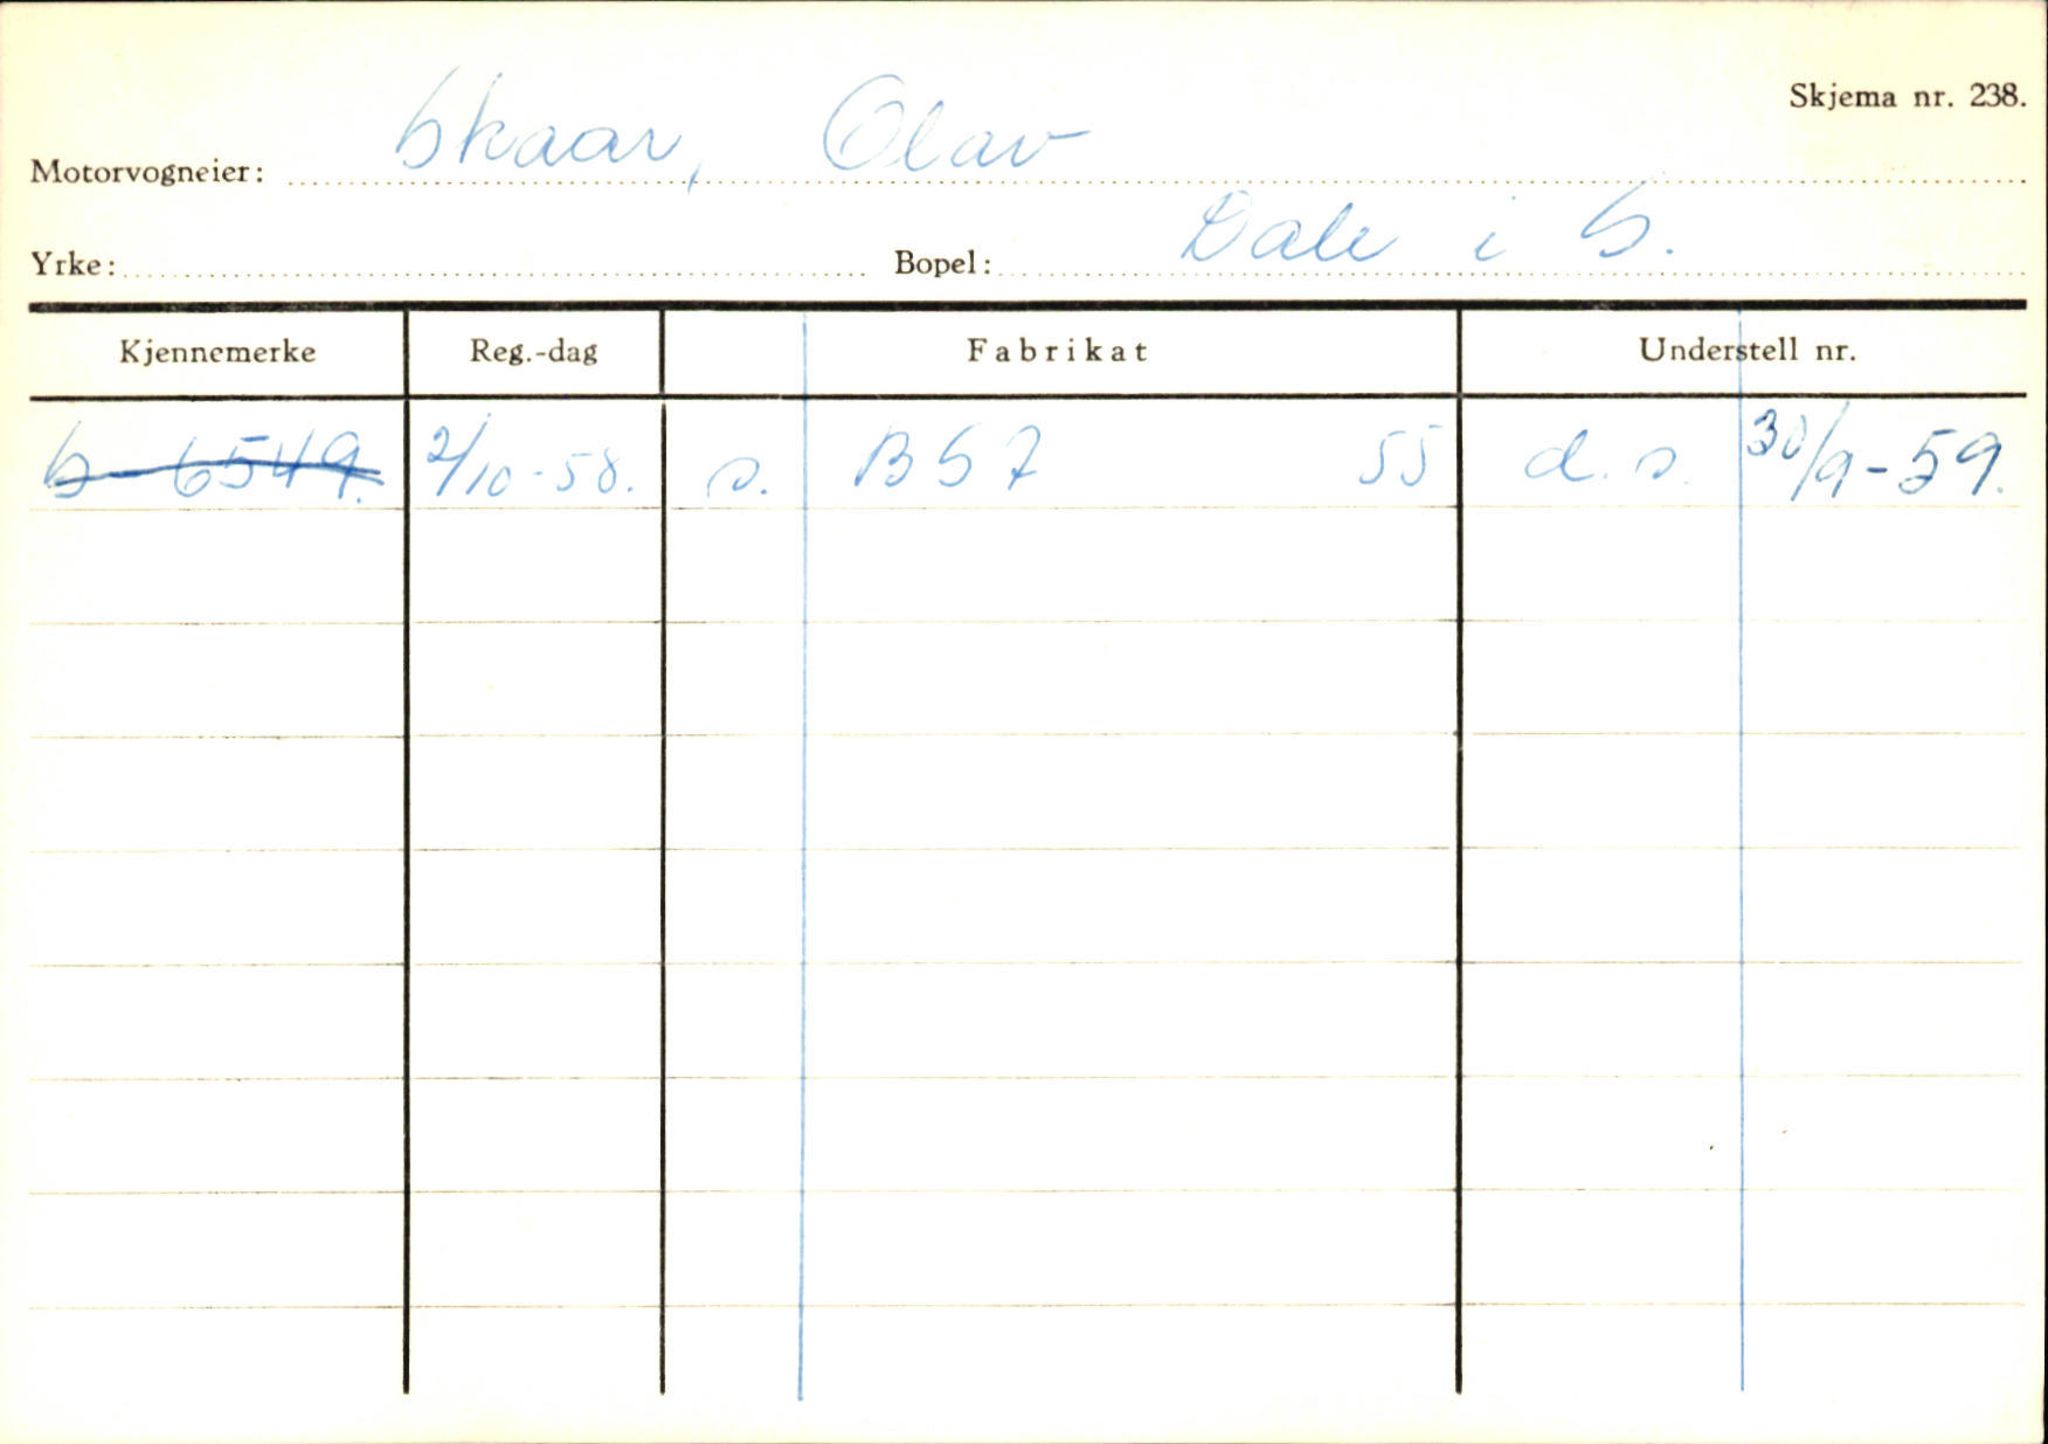 Skjema nr. 238.
Motorvogneier: Skaar, Olav
Yrke: Bopel: Dale i S.
Kjennemerke Reg.-dag Fabrikat Understell nr.
S 6549. 2/10-58. s. BS7 55 d. s. 30/9-59.